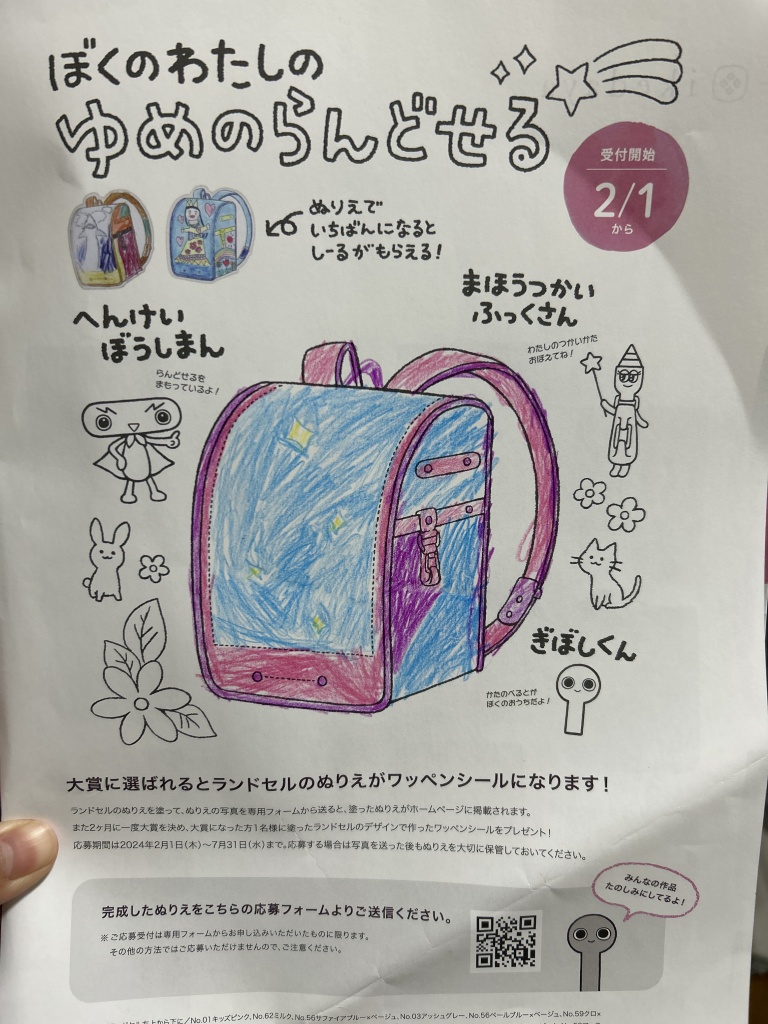 ぼくのわたしの
ゆめのらんどせる
受付開始
2/1
から
ぬりえで
いちばんになると
しーるがもらえる!
まほうつかい
ふっくさん
わたしのつかいかた
おぼえてね!
へんけい
ぼうしまん
らんどせるを
まもっているよ!
ぎぼしくん
かたのべるとが
ぼくのおうちだよ!
大賞に選ばれるとランドセルのぬりえがワッペンシールになります!
ランドセルのぬりえを塗って、ぬりえの写真を専用フォームから送ると、塗ったぬりえがホームページに掲載されます。
また2ヶ月に一度大賞を決め、大賞になった方1名様に塗ったランドセルのデザインで作ったワッペンシールをプレゼント!
応募期間は2024年2月1日(木)〜7月31日(水)まで。応募する場合は写真を送った後もぬりえを大切に保管しておいてください。
みんなの作品
たのしみにしてるよ!
完成したぬりえをこちらの応募フォームよりご送信ください。
※ご応募受付は専用フォームからお申し込みいただいたものに限ります。
その他の方法ではご応募いただけませんので、ご注意ください。
No.01キッズピンク、No.62ミルク、No.56サファイアブルー×ベージュ、No.03アッシュグレー、No.56ペールブルー×ベージュ、No.59クロ×